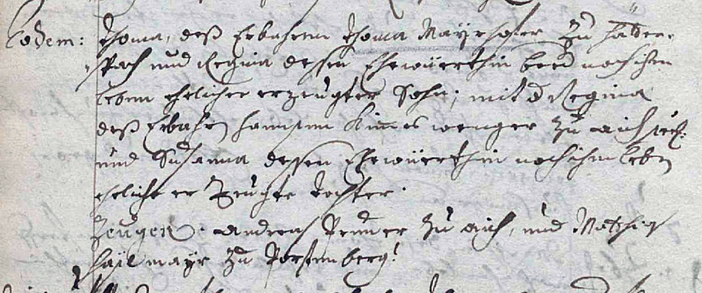 Eodem: Thoma, deß Erbahrnn Thoma Mayrhofer zu Hätter-
spach und Regina dessen Ehewürthin beed noch im
leben ehelicher erzeugter Sohn; mit Regina
deß Erbahrn Hannsen wenger zu Aich
und Susanna dessen Ehewürthin noch im leben
ehelich erzeugte tochter.
Zeugen: Andreas zu Aich, und Matthias
Hailmayr zu